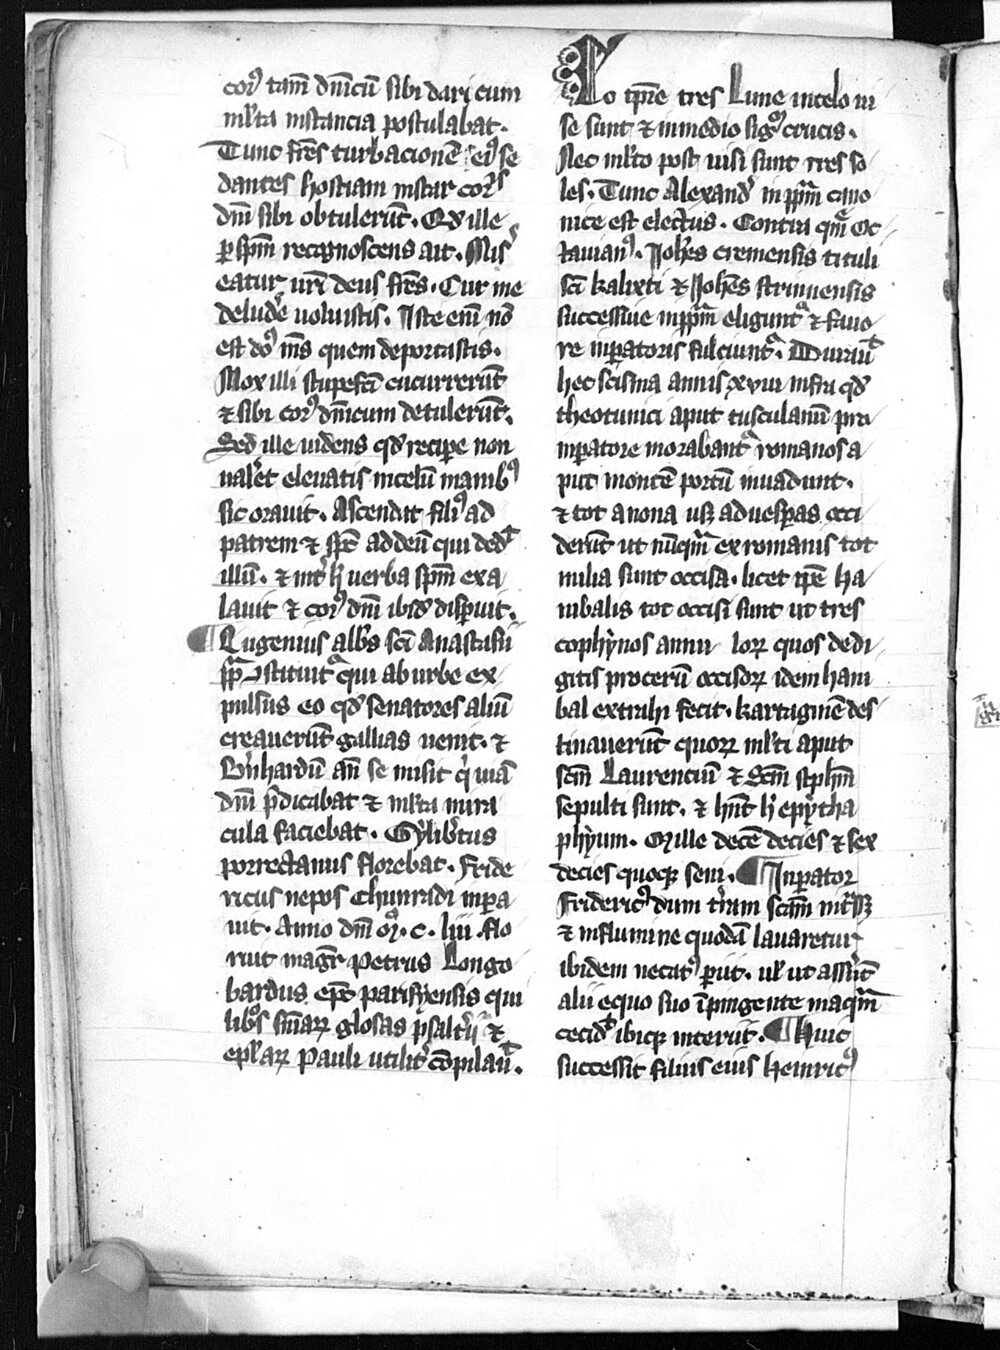 corꝰ tam̄ dn̄icū sibi dari cum
ml̄ta instancia postulabat.
Tunc fr̄es turbacionē eiꝰ se
dantes hostiam instar corꝑis
dn̄i sibi obtulerūt. Qr̄ ille
ꝑ sp̄m recognoscens ait. Mis
eatur vr̄i deus fr̄es. Cur me
deludere voluistis. Iste eni nō
est dōꝰ mꝰs quem deportastis.
Mox illi stupefc̄i cucurrerūt
⁊ sibi corꝰ dn̄icum detulerūt.
Sed ille videns qd̓ recipe non
valet eleuatis in celū manibꝰ
sic orauit. Ascendit filiꝰ ad
patrem ⁊ spē ad deū qui dedit
illū. ⁊ int̓ h̓ verba sp̄m exa
lauit ⁊ corꝰ dn̄i ibid̓ dispuit.
Eugenius alb̄s sc̄i Anastasii
sp̄r ꝯstituitᷣ qui ab urbe ex
pulsus eo qd̓ senatores aliū
creauerūt gallias uenit. ⁊
b̓nhardū an̄ se misit q̓ uiā
dn̄i p̄dicabat ⁊ ml̄ta mira
cula faciebat. Gylib̓tus
porrectanus florebat. Fride
ricus nepos Chunradi inꝑa
uit. Anno dn̄i ꝏ. c. liii. flo
ruit magr̄ Petrus Longo
bardus ep̄c parisyensis qui
lib̓os sniaꝝ glosas psalt̓ii ⁊
epl̄aꝝ Pauli utilit̓ cōpilauit.
Eo tp̄re tres Lune in celo ui
se sunt ⁊ in medio sigꝰ crucis.
Nec ml̄to post uisi sunt tres so
les. Tunc Alexand̓ in pp̄am cano
nice est electus. Contra quē Oc
tauianꝰ. Ioh̄es cremensis tituli
sc̄i kalixti ⁊ Ioh̄es strumensis
successiue in pp̄am eliguntᷣ ⁊ fauo
re inꝑatoris fulciuntᷣ. Durauit
hec scisma annis xviii infra qd̓
theotunici aput tusculanū pro
inꝑatore morabantᷣ romanos a
put montē portū inuadunt.
⁊ tot a nona usꝫ ad uesꝑas occi
derūt ut nūqm̄ ex romanis tot
milia sunt occisa. licet tp̄e ha
nibalis tot occisi sunt ut tres
cophynos annulloꝝ quos dedi
gitis procerū occisoꝝ idem hani
bal extrahi fecit. kartaginē des
tinauerūt quoꝝ ml̄ti aput
sc̄m Laurenciū ⁊ sc̄m stph̄m
sepulti sunt. ⁊ hn̄t h̓ epytha
phyum. Mille decē decies ⁊ sex
decies quoqꝫ seni. Inꝑator
Fridericꝰ dum t̓ram sc̄am int̓sꝫ
⁊ in flumine quodā lauaretur
ibidem necatꝰ ꝑiit. ul̓ ut asser̄t
alii equo suo īpingente in aqm̄
cecid̓ ibiqꝫ interiit. Huic
successit filius eius heinricꝰ